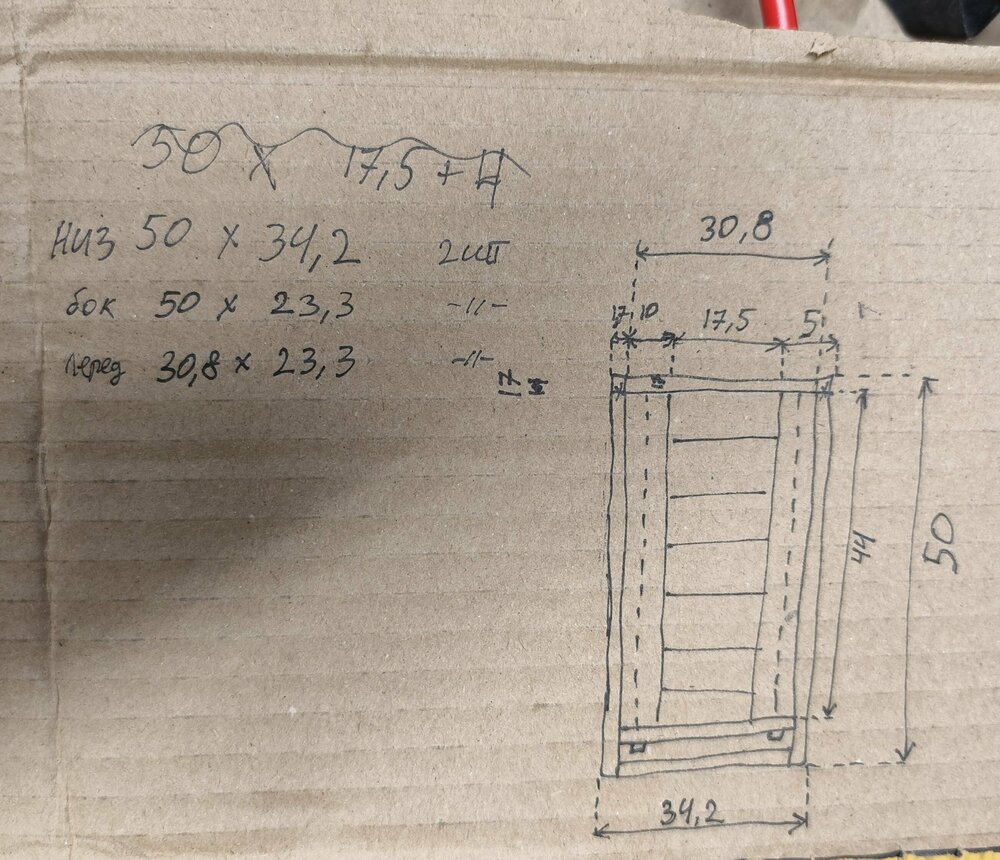 50 x 17,5 + 4
низ 50 x 34,2 2шт
бок 50 x 23,3 -//-
перед 30,8 x 23,3 -//-
17
30,8
17 10 17,5 5
44
50
34,2